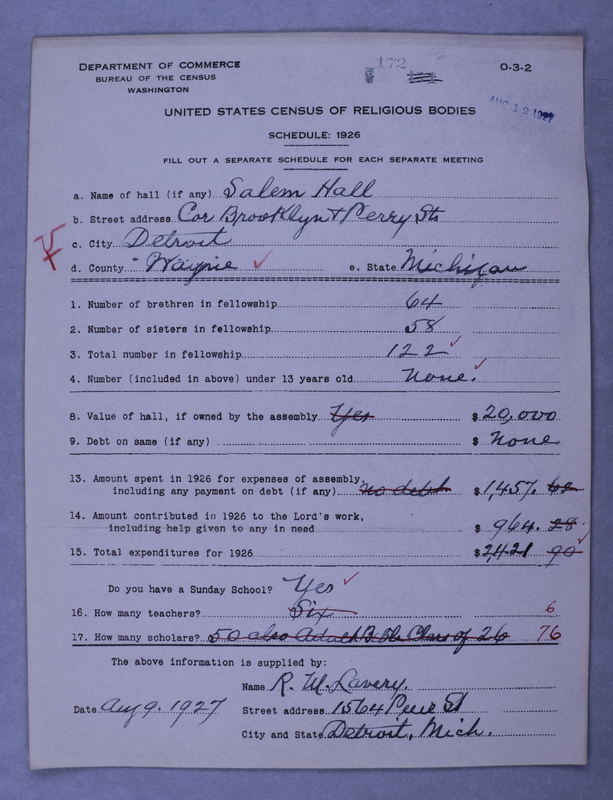 DEPARTMENT OF COMMERCE
BUREAU OF THE CENSUS
WASHINGTON
172
O-3-2
AUG 12 1927
UNITED STATES CENSUS OF RELIGIOUS BODIES
SCHEDULE: 1926
FILL OUT A SEPARATE SCHEDULE FOR EACH SEPARATE MEETING
a. Name of hall (if any) Salem Hall
b. Street address Cor Brooklyn & Perry Sts
c. City Detroit
d. County Wayne e. State Michigan
1. Number of brethren in fellowship 64
2. Number of sisters in fellowship 58
3. Total number in fellowship 122
4. Number (included in above) under 13 years old None.
8. Value of hall, if owned by the assembly Yes $ 20,000
9. Debt on same (if any) $ None
13. Amount spent in 1926 for expenses of assembly,
including any payment on debt (if any) no debt $ 1,457. 62
14. Amount contributed in 1926 to the Lord's work,
including help given to any in need $ 964. 28
15. Total expenditures for 1926 $ 2,421 90
Do you have a Sunday School? Yes
16. How many teachers? Six 6
17. How many scholars? 50 also Adult Bible Class of 26 76
The above information is supplied by:
Name R. W. Lavery.
Date Aug 9. 1927 Street address 1564 St
City and State Detroit, Mich.